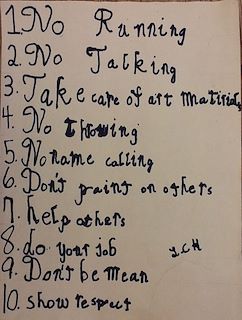 1. No Running
2. No Talking
3. Take care of art materials
4. No throwing
5. No name calling
6. Don't paint on others
7. help others
8. do your job
J.C.H
9. Don't be mean
10. show respect